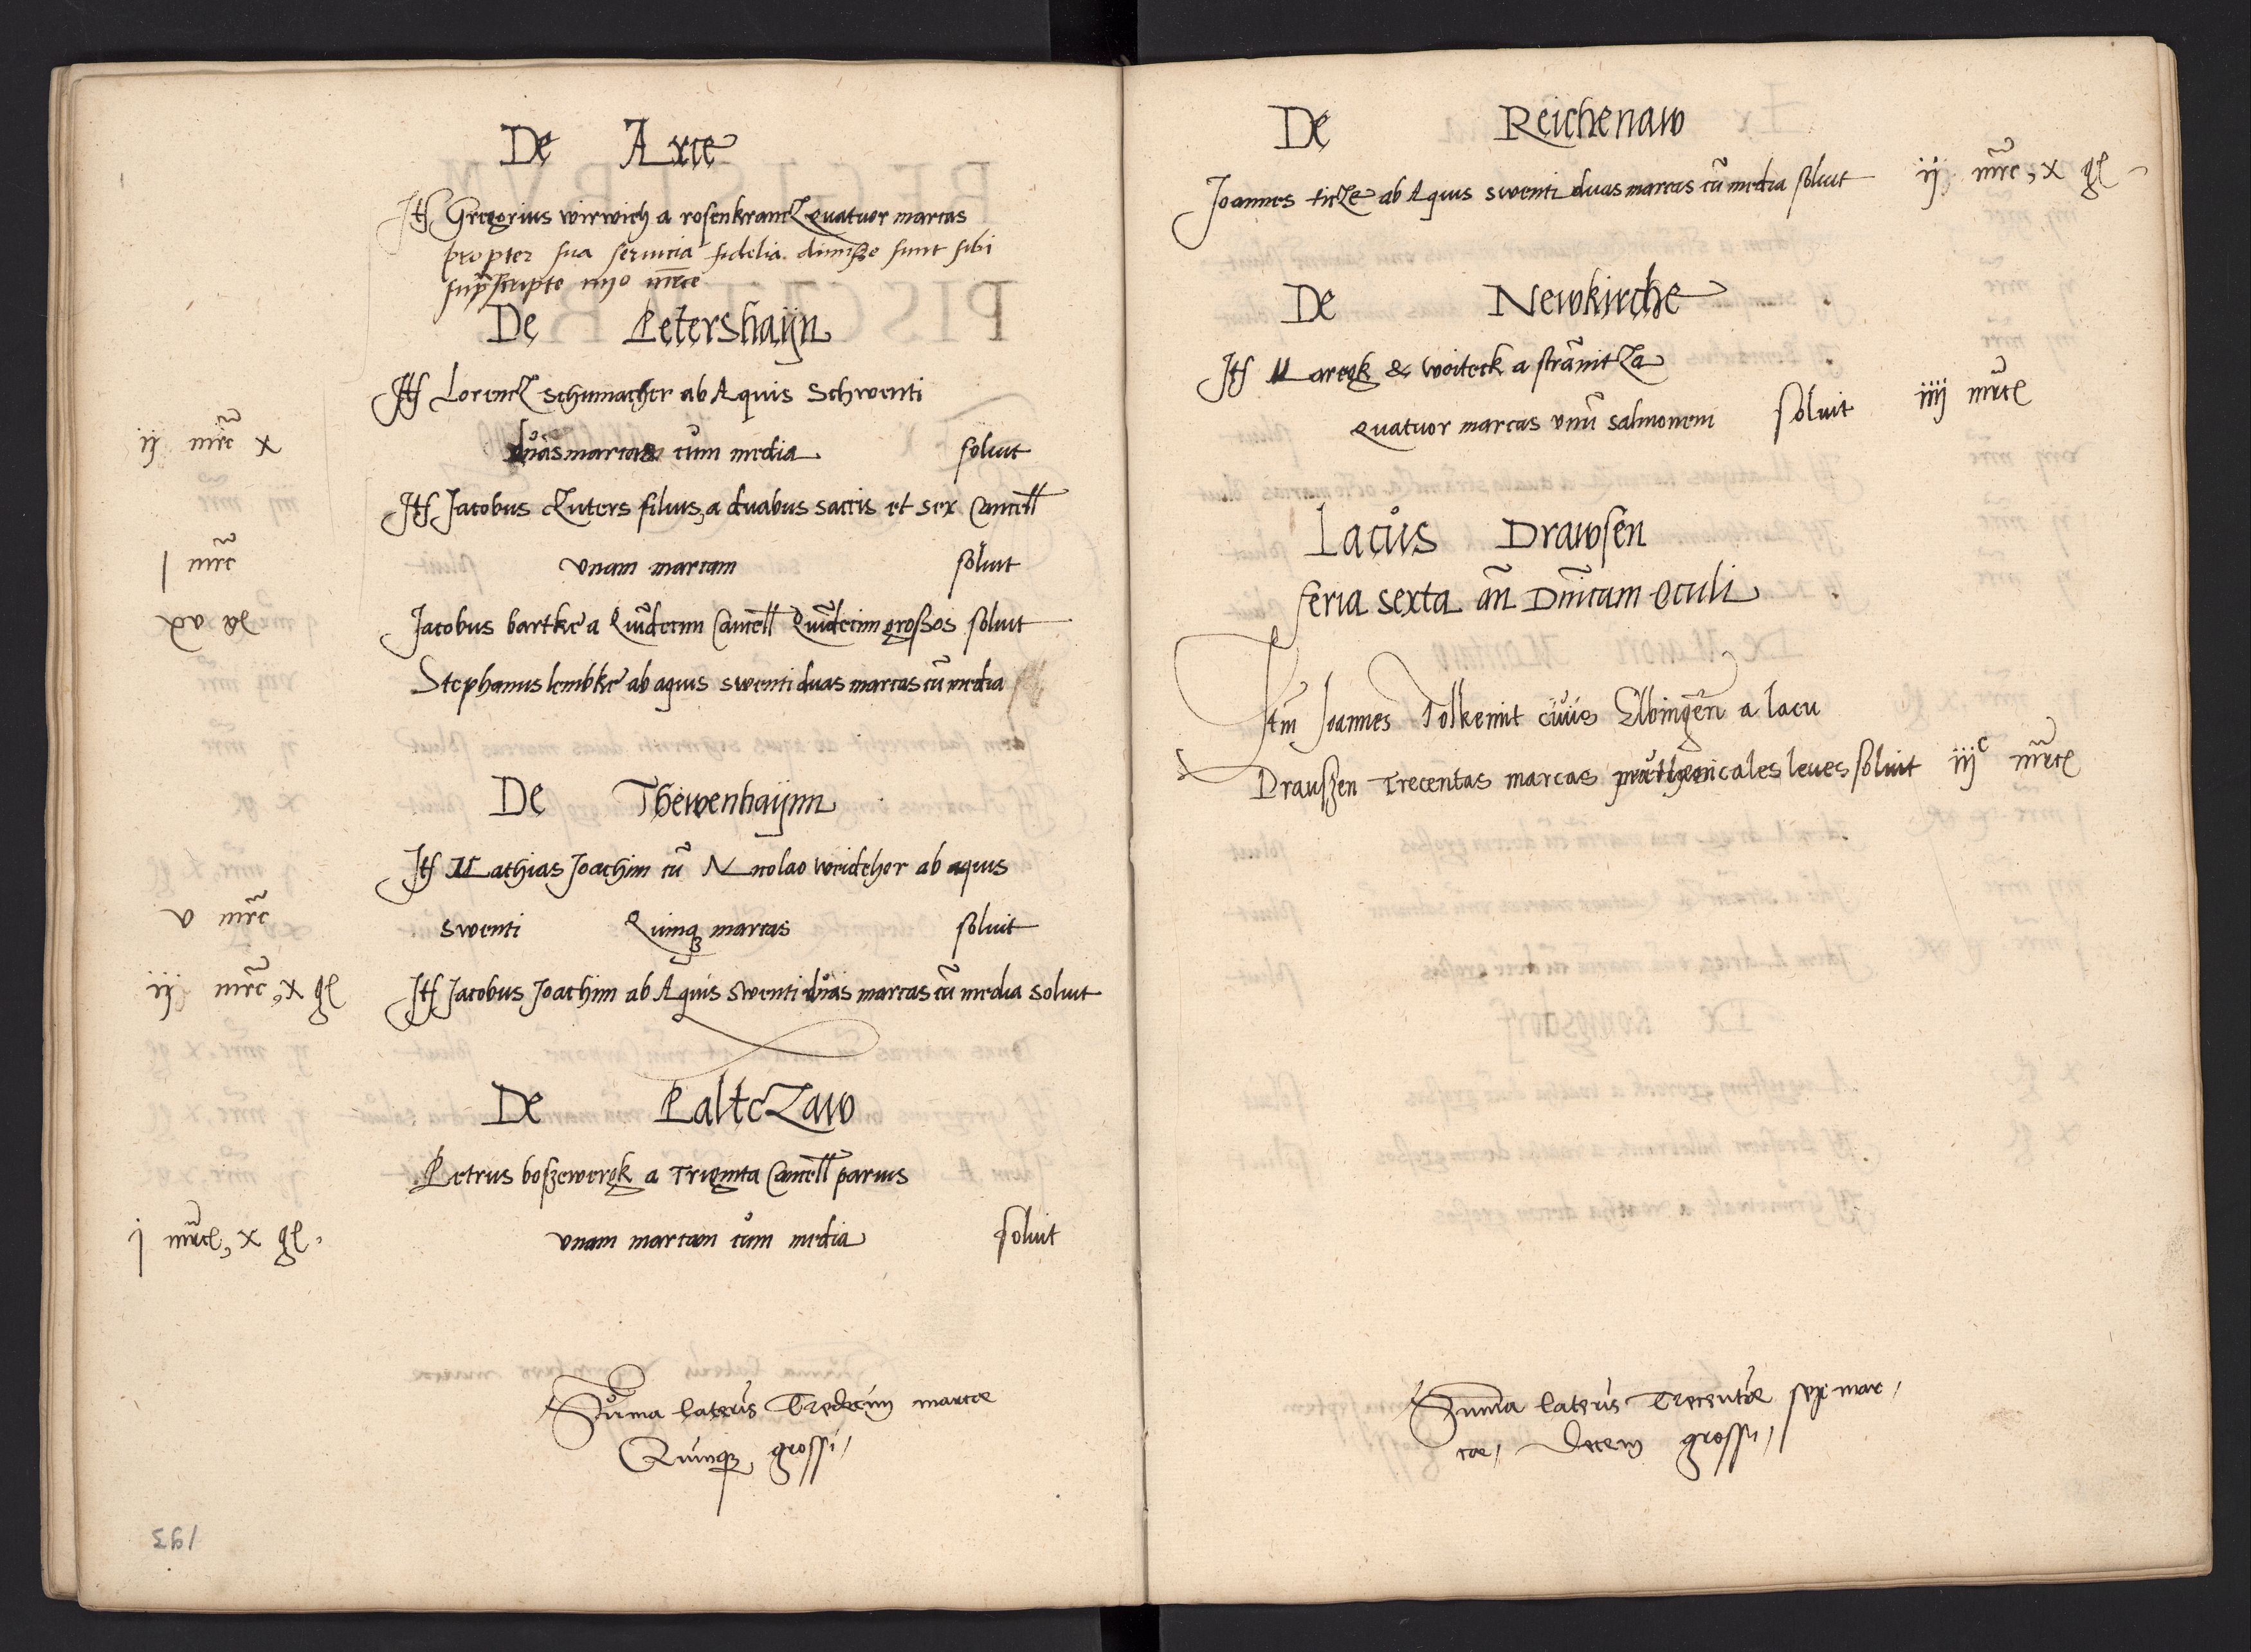 De Arce
Itf Gregorius wirwich a rosenkrancz quatuor marcas
propter sua seruicia fidelia dimisse sunt sibi
supscripte iiijo mrce
De Petershaijn
Itf Lorencz Schumacher ab Aquis Schwenti
ij mrc x duas marcas cum media soluit
Itf Jacobus Luters filius, a duabus saccis et sex Cancell
j mrc vnam marcam soluit
xv gl Jacobus bartke a Quidecim Cancell Quidecim grossos soluit
Stephanus lembke ab aquis swenti duas marcas cū media
De Thewenhaijnn
Itf Mathias Joachim cū Nicolao weidehor ab aquis
v mrc swenti Quinqz marcas soluit
ij mrc, x gl Itf Jacobus Joachim ab Aquis Swenti duas marcas cū media soluit
De PaltcZaw
Petrus boszewergk a Triginta Cancell paruis
j mrcl, x gl. vnam marcam cum media soluit
Suma lateris Tredecim marcæ
Quinqz grossi/
193
De Reichenaw
Joannes ticze ab Aquis swenti duas marcas cū media soluit ij mrc, x gl
De Newkirche
Itf Maregk & woiteck a strānitza
quatuor marcas vnū salmonem soluit iiij mrcl
Lacus Drawsen
feria sexta añ Dnicam Oculi
Itm Joannes Tolkemit ciuis Elbingeñ a lacu
Drauszen Trecentas marcas pruthenicales leues soluit iijc mrcl
Summa lateris Trecentæ sex mar/
cæ/ decem grossi/